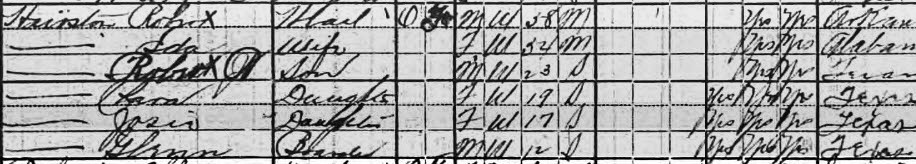 Hairston Robert X Head O M W 58 M Yes Yes Arkan
— Ida Wife F W 54 M Yes Yes Alabam
— Robert X Son M W 23 S Yes Yes Texas
— Daughter F W 19 S Yes Yes Yes Texas
— Josie Daughter F W 17 S Yes Yes Yes Texas
— Glenn M W 12 S Yes Yes Yes Texas